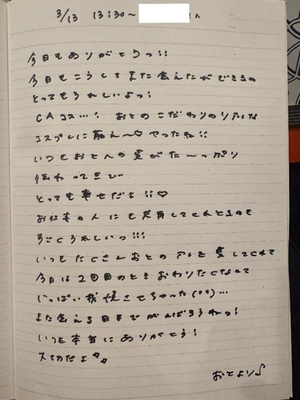 3/13 13:30~
今日もありがとうっ!!
今日もこうしてまた会えたができるの
とってもうれしいよっ!
CAコス…! おとのこだわりのりたいな
コスプレに萌え~♡やったね!!
いつもおとへの愛がた~っぷり
伝わってきて
とっても幸せだよ!!♡
お仕事の人にも してくれてるので
すごくうれしいっ!!!
いつもたくさんおとのアレを愛してくれて
今日は2回目のときおわりたくなくて
いっぱい我慢させちゃった
また会える日までがんばろうねっ!
いつも本当にありがとう!
大切だよ
おとより♪